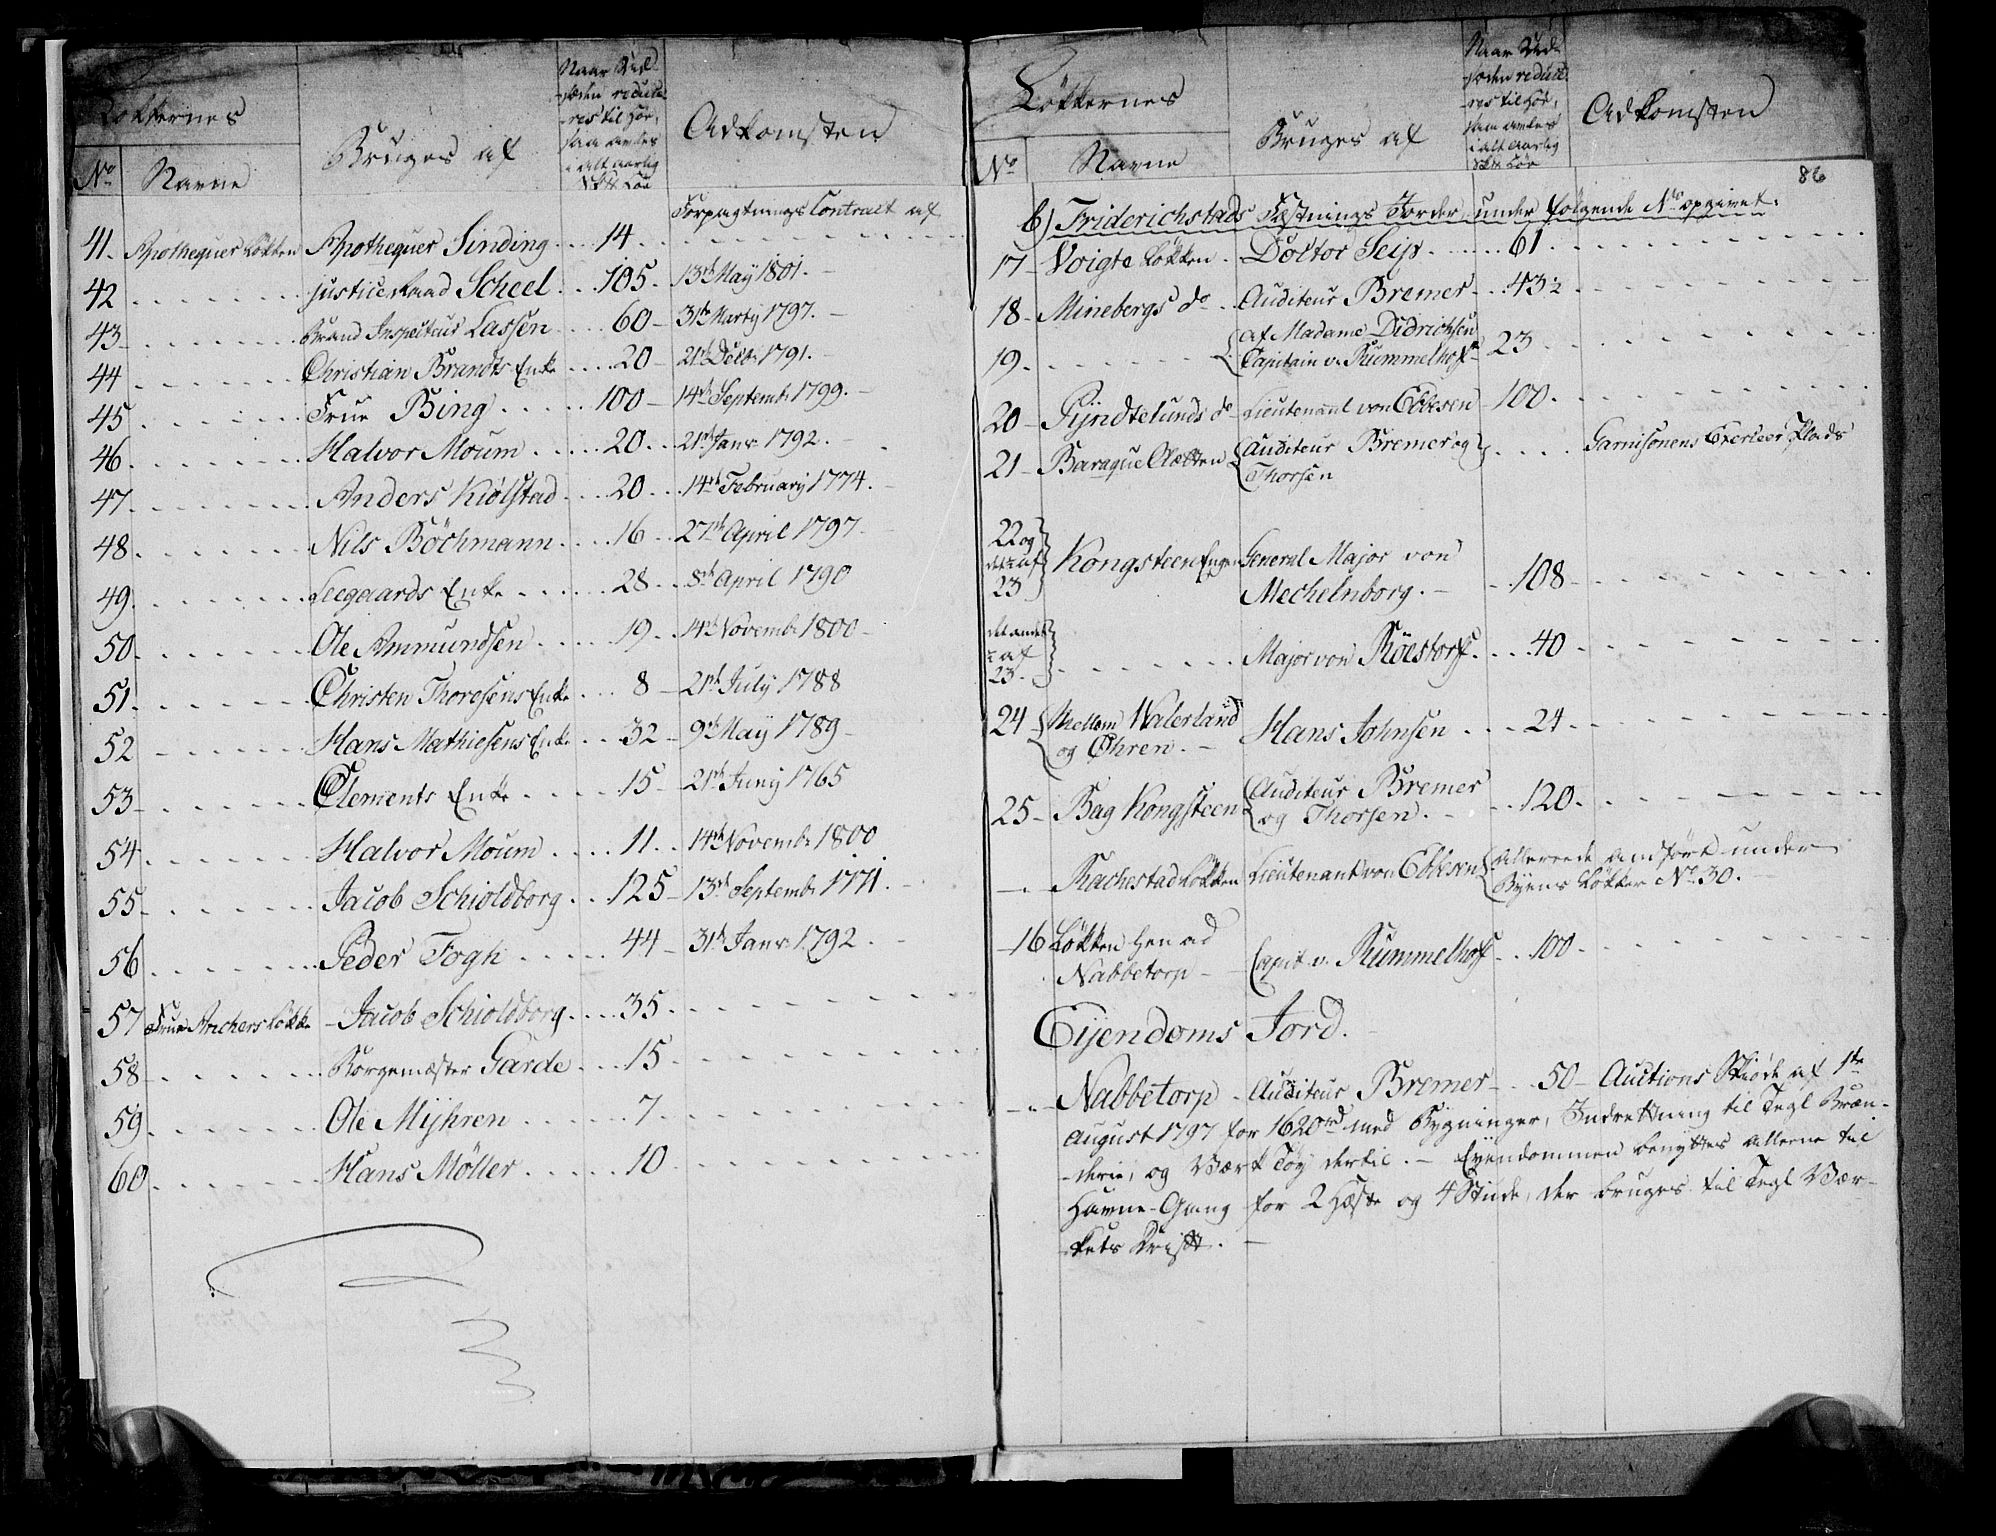 Løkkernes
Bruges af
Naar Udsæden reduceres til Høe, saa avles i alt aarlig Sk℔ Høe
Adkomsten
No Navne
Forpagtnings Contract af
41. Apothequer Løkken Apothequer Sinding 14.
42 Justiceraad Scheel 105. 13de May 1801.
43 Brand Inspecteur Lassen 60 31te Marty 1797.
44 Christian Brandts Enke 20 21de Decbr 1791.
45 Frue Bing 100 14de Septembr 1799.
46 Halvor Moum 20 21de Janr 1792.
47 Anders Kiölstad 20 14de February 1774.
48 Nils Böchmann 16 27de April 1797
49 Leegaards Enke 28 8de April 1790
50 Ole Ammundsen 19 14de Novembr 1800
51 Christen Thoresens Enke 8 21de July 1788
52 Hans Mathiesens Enke 32 9de May 1789
53 Clements Enke 15 21de Juny 1765
54 Halvor Moum 11 14de Novembr 1800
55 Jacob Schioldborg 125 13de Septembr 1771.
56 Peder Fogh 44 31te Janr 1792.
57 Frue Anchers Løkke Jacob Schioldborg 35
58 Borgemæster Garde 15
59 Ole Mÿhren 7
60 Hans Möller 10
Løkkernes
Bruges af
Naar Udsæden reduceres til Høe, saa avles i alt aarlig Sk℔ Høe
Adkomsten
No Navne
86
b) Friderichstads Fæstnings Jorder under følgende No opgivet:
17 Voigte Løkken Doctor Seip 61
18 Minebergs do Auditeur Bremer 43½
19. af Madame Didrichsen
Capitain v. Rummelhoff 23
20 Pyndtelunds do Lieutenant von Ebbesen 100.
21 Baraque Sletten Auditeur Bremer og
Thorsen Garnisonens Exerceer Plads
22 og
det ½ af
23 Kongsteen Engen General Major von
Mechelnborg. 108
det andet
½ af
23. Major von Röestorff 40
24 Mellem Walerland
og Öhren. Hans Johnsen 24
25 Bag Kongsteen Auditeur Bremer
og Thorsen. 120.
Rachestad Løkken Lieutenant von Ebbesen Allereede andført under
Byens Løkker No 30.
16 Løkken hen ad
Nabbetorp Capit v. Rummelhoff 100
Eÿendoms Jord.
Nabbetorp Auditeur Bremer 50 Auctions Skiøde af 1te
August 1797 for 1620 rd med Bygninger, Indretning til Tegl Bræn-
derie, og Værk Tøy dertil. Eyendommen benyttes allene til
Havne-Gang for 2 Heste og 4 Stude, der bruges til Tegl Vær-
kets Drift.